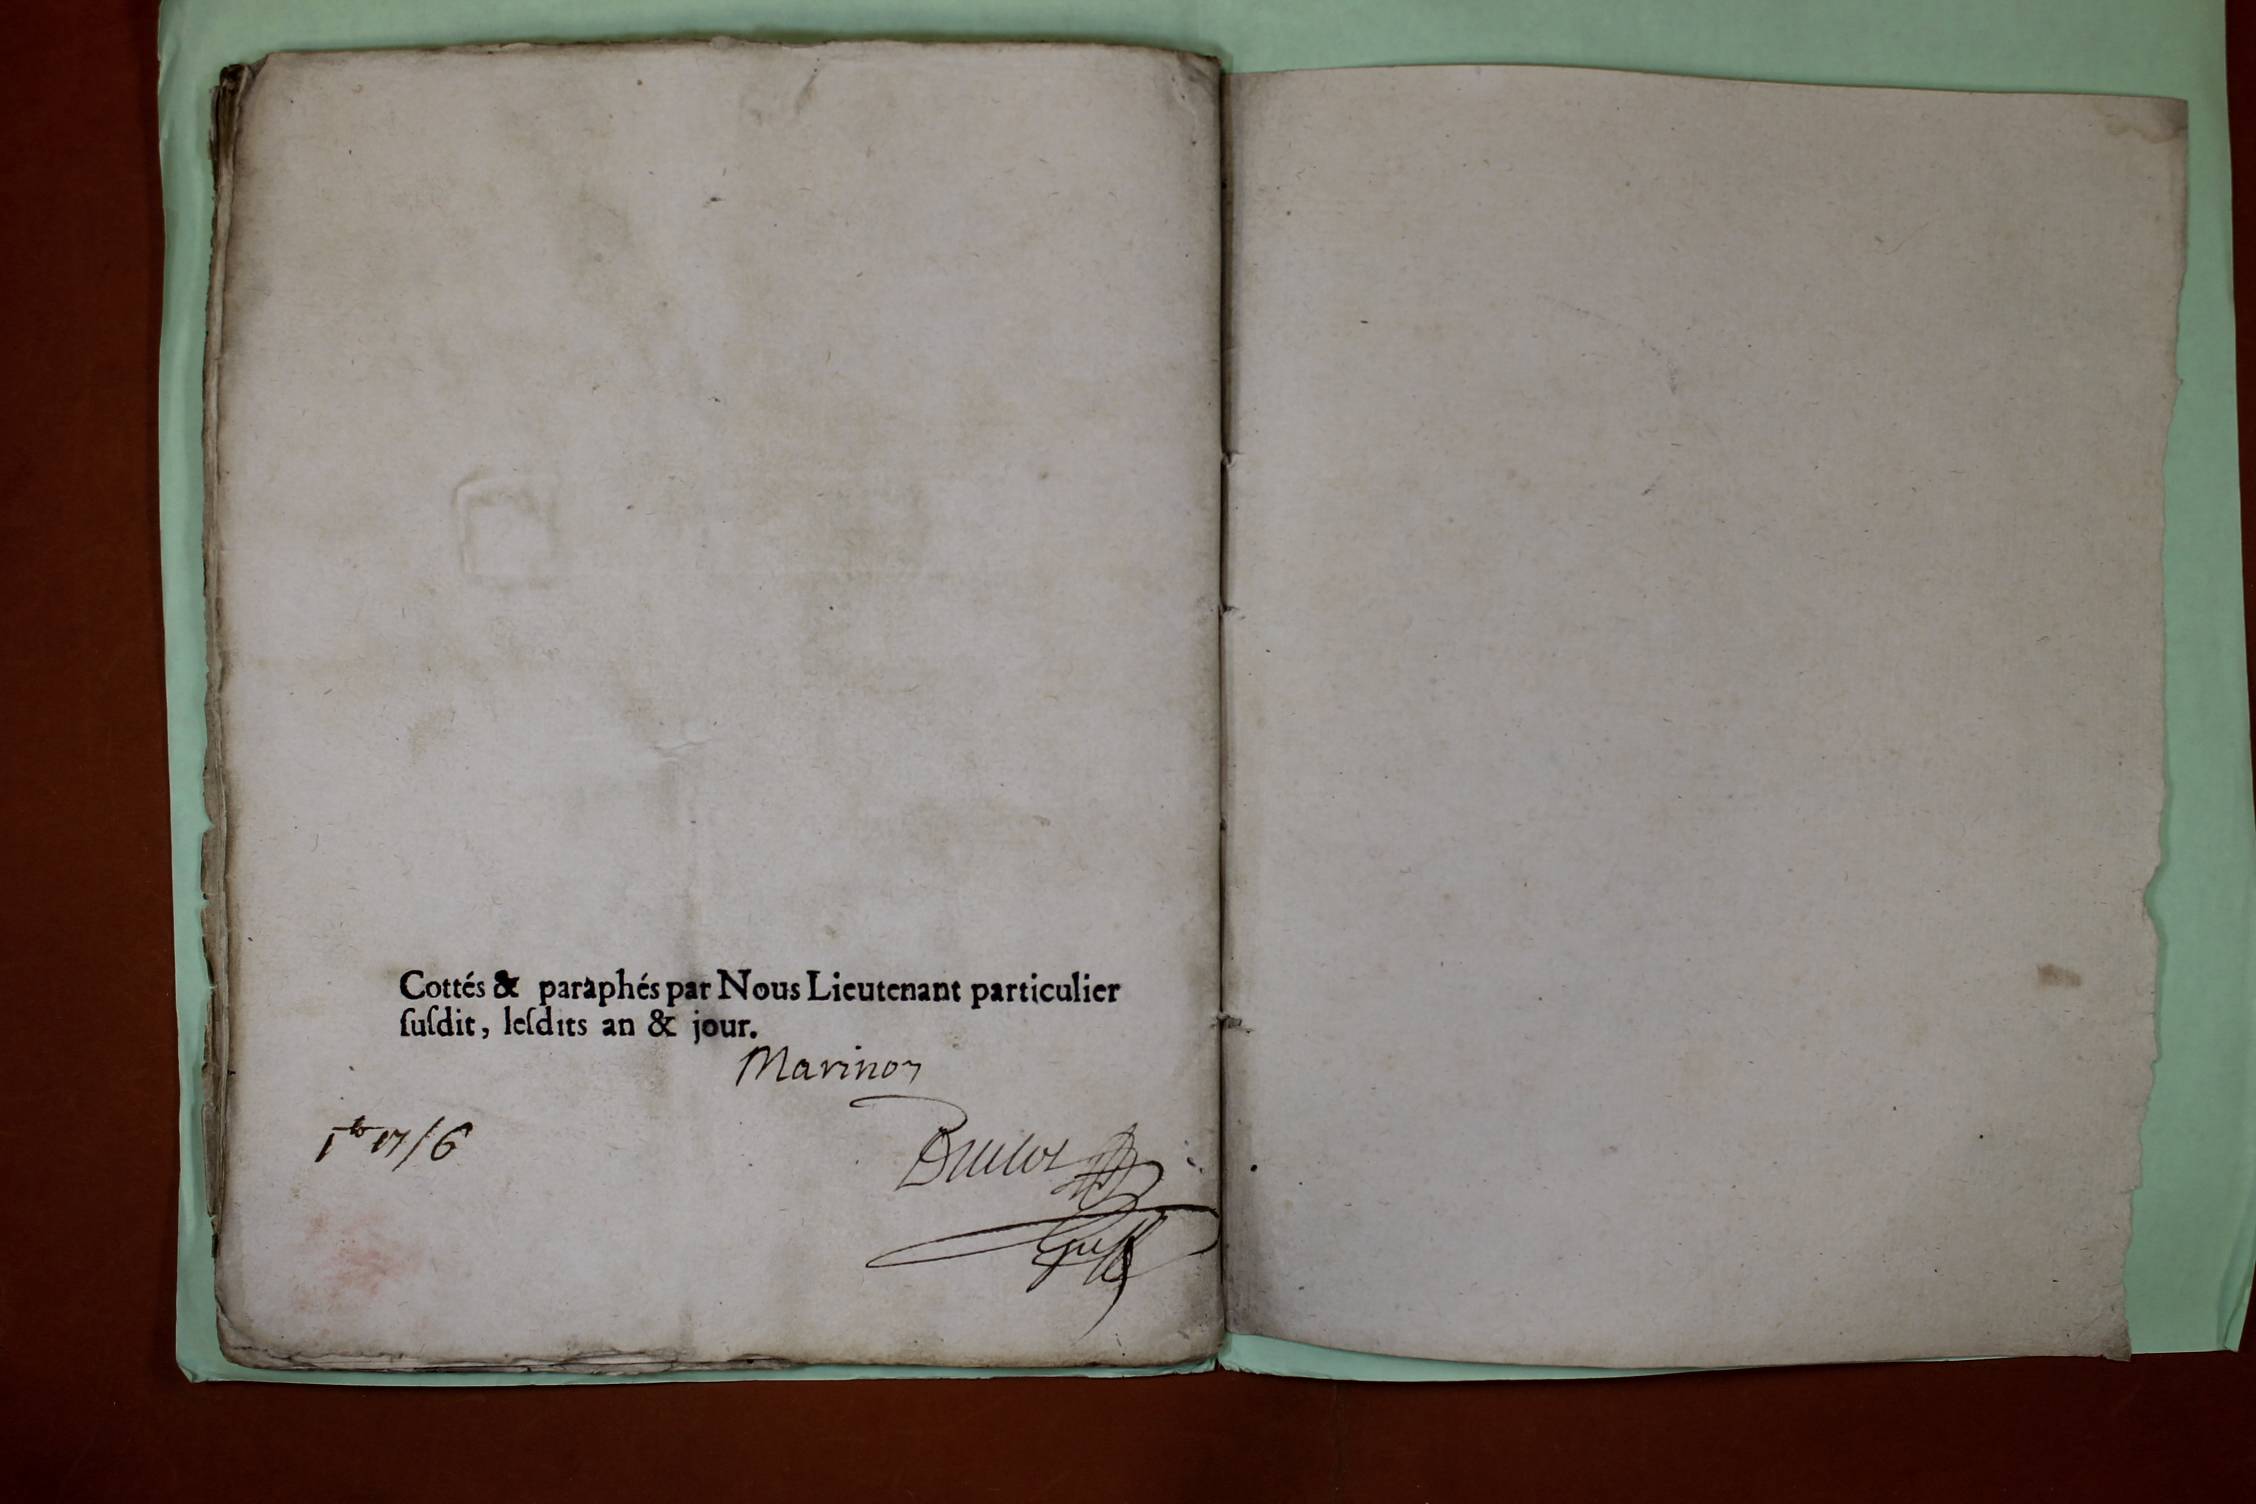 Cottés & paraphés par Nous Lieutenant particulier
ſuſdit, leſdits an & jour.
Marinon
Greff